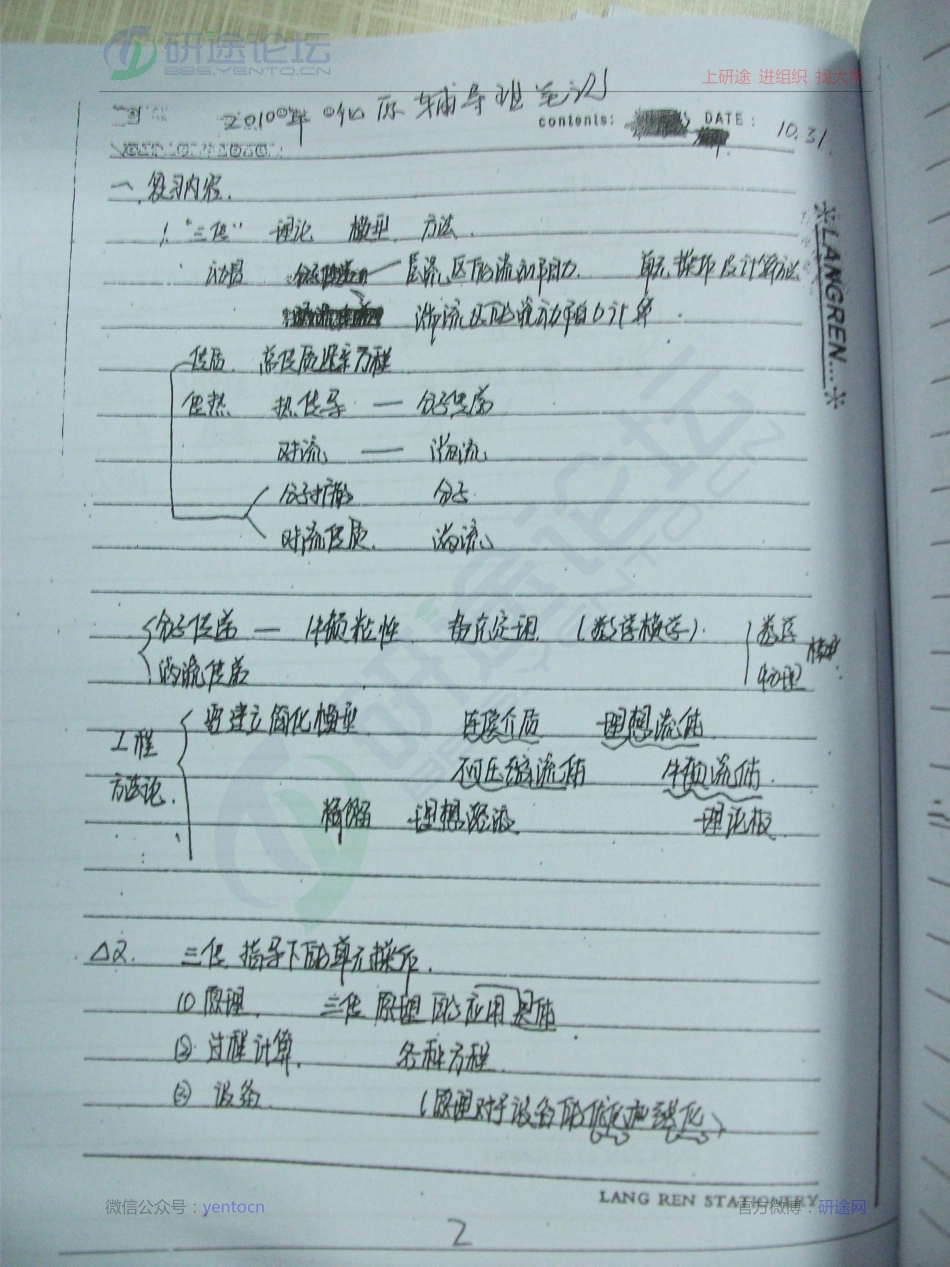 研途论坛
BBS.YENTO.CN
上研途 进组织 找大
2010年 化原 辅导班笔记
contents: DATE: 10.31.
一、复习内容.
1. "三传" 理论 模型 方法.
动量 层流区的流动阻力. 单元操作及计算方法
湍流区的流动阻力计算.
传质. 总传质速率方程
传热 热传导 — 分子传递
对流 — 湍流
分子扩散 分子.
对流传质. 湍流
*LANGREN...*
分子传递 — 牛顿粘性 (数学模型). 数学 模型.
湍流传递 物理
工程 要建立简化模型. 连续介质 理想流体.
不可压缩流体 牛顿流体.
方法论. 精馏 理想溶液 理论板
△2. 三传指导下的单元操作.
① 原理. 三传原理的应用 具体
② 过程计算. 各种方程
③ 设备. (原理对于设备的优化和强化)
LANG REN STATIONERY
微信公众号：yentocn 官方微博：研途网
2